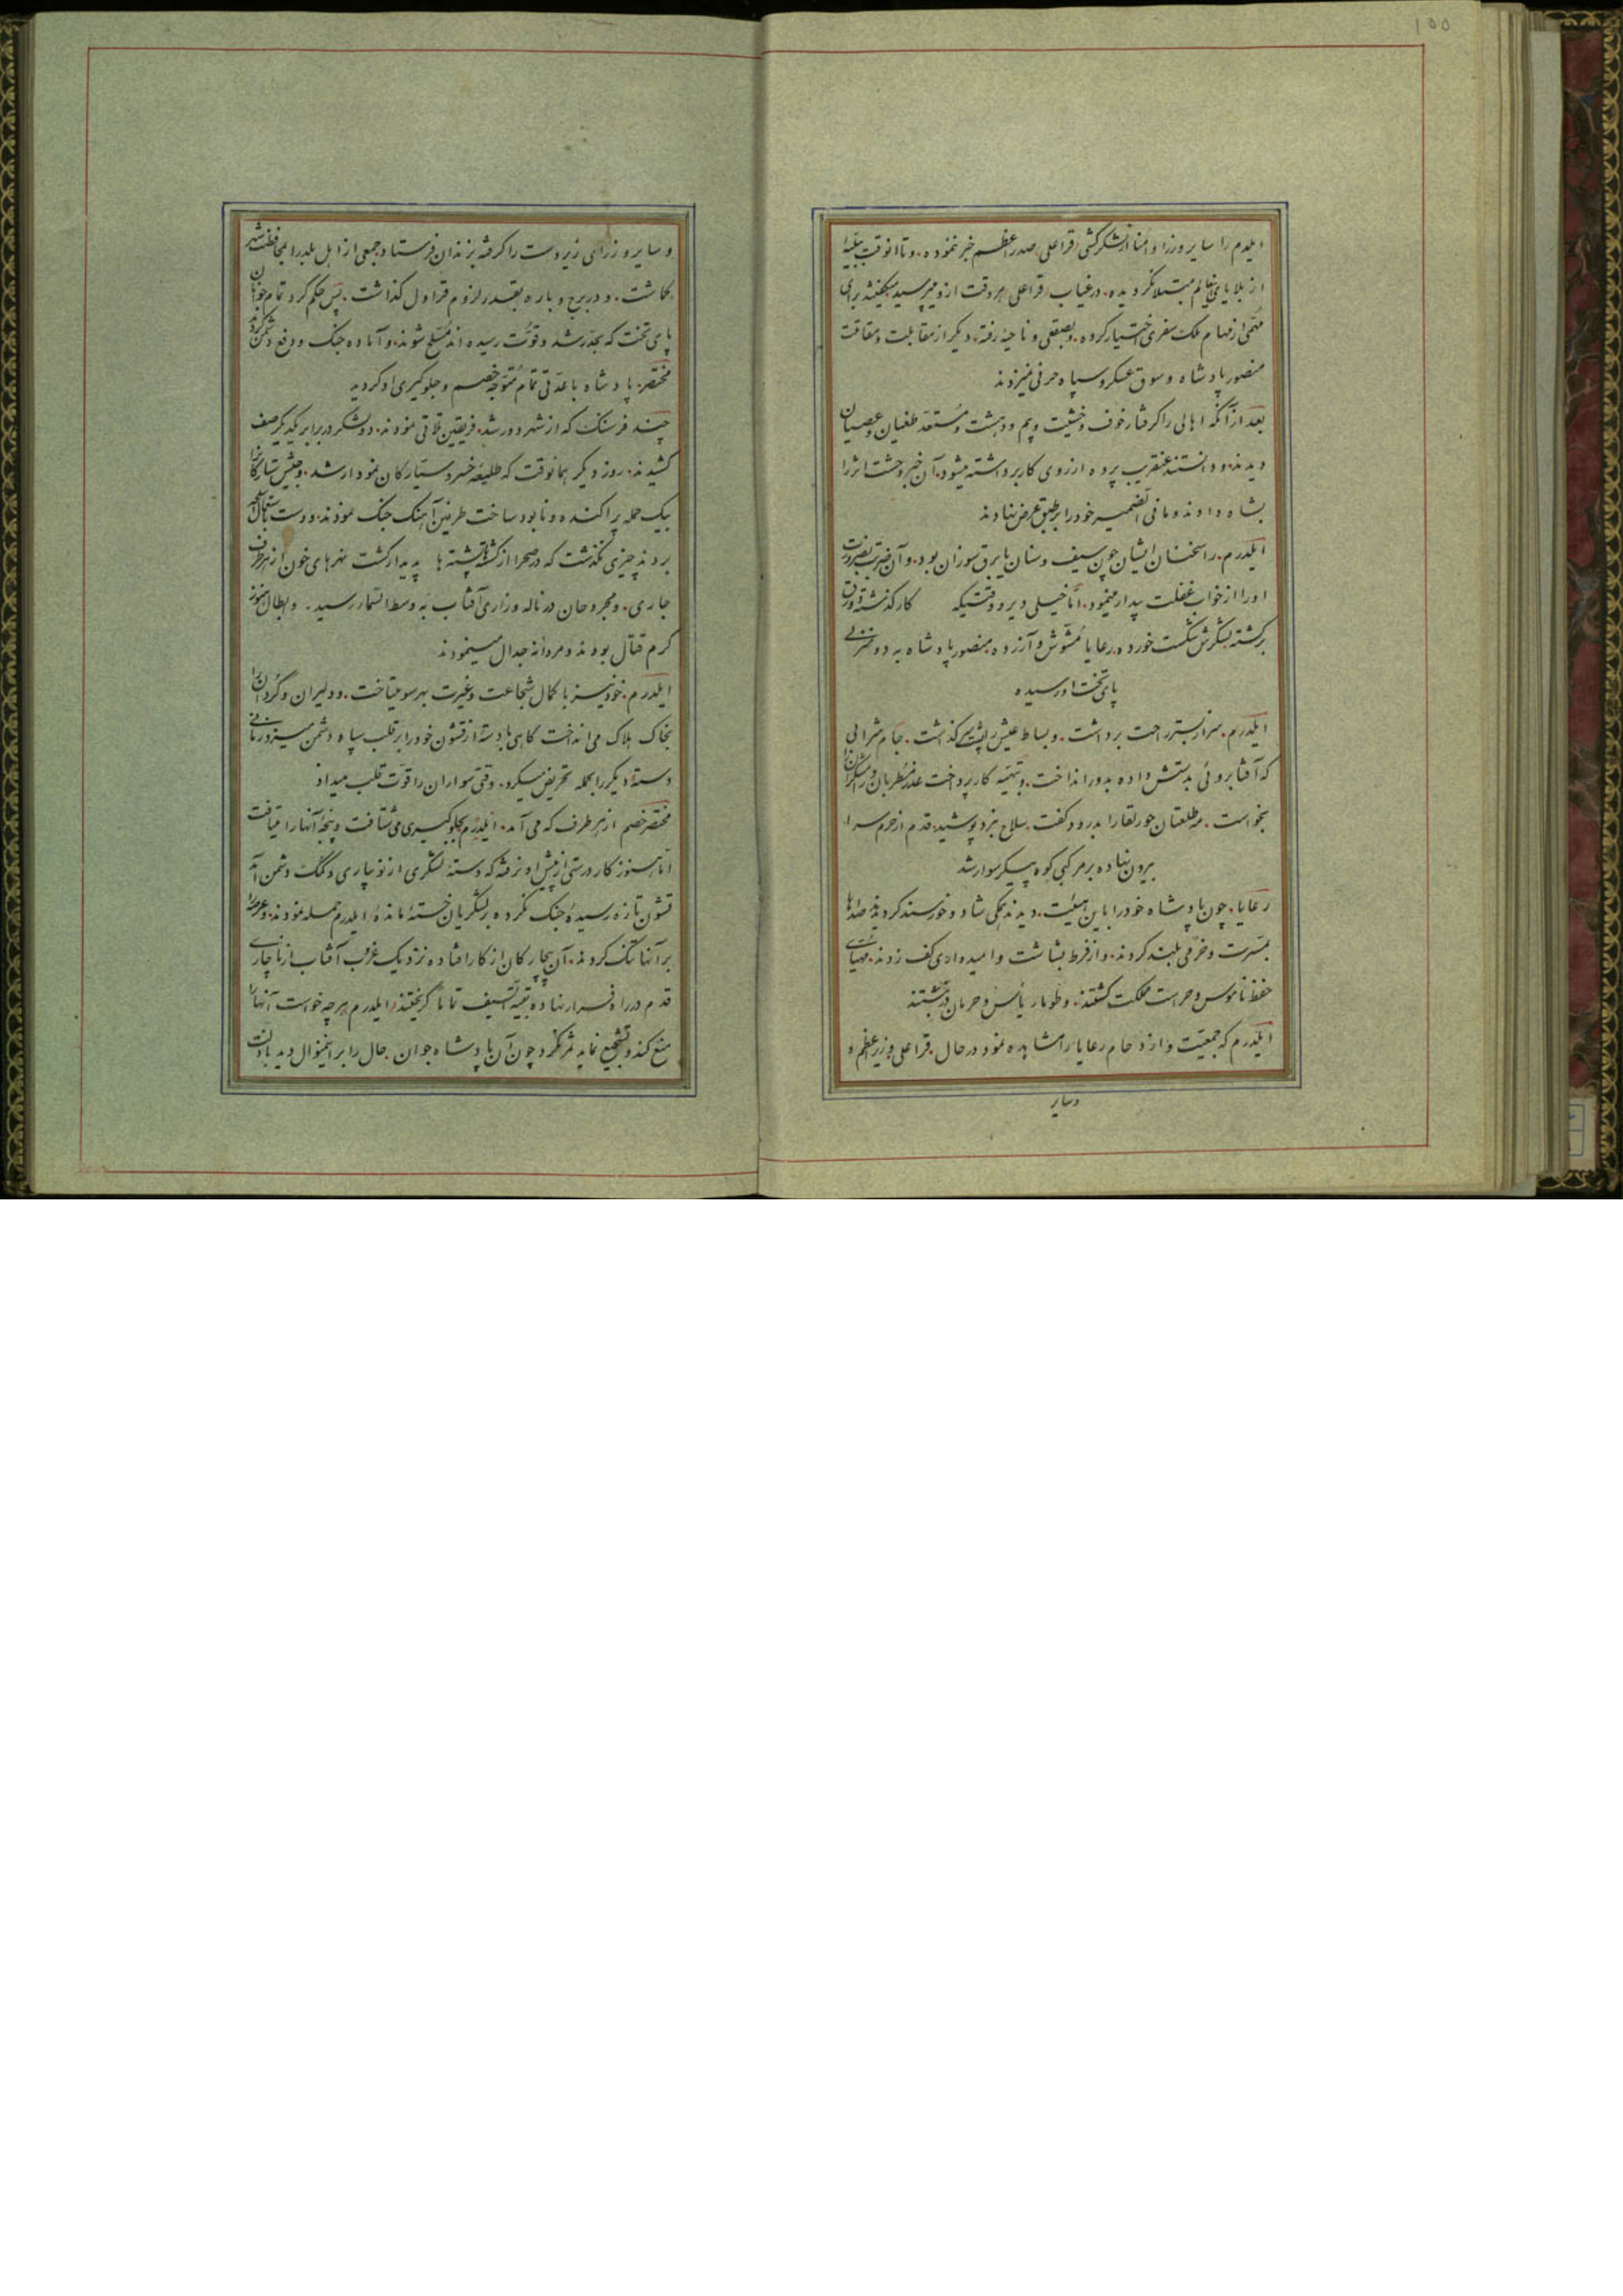 ۱۵۵
ایلدرم را سایر وزرا و اُمنا از لشکرکشی قراعلی صدر اعظم خبر نموده. و تا آنوقت ببلیّهٔ
از بلایای عالم مبتلا نگردیده. در غیاب قراعلی هر وقت ازو میپرسید میگفتند برای
مُهمّی از مهام ملک سفری اختیار کرده. وبصقعی و ناحیهٔ رفته. دیگر از مقابلت و مقاتلت
منصور پادشاه و سوق عسکر و سپاه حرفی نمیزدند
بعد از آنکه اهالی را گرفتار خوف و خشیت و بیم و دهشت و مُستعدّ طغیان و عصیان
دیدند. و دانستند عنقریب پرده از روی کار برداشته میشود. آن خبر وحشت اثر را
بشاه دادند و ما فی الضمیر خود را بر طبق عرض نهادند
ایلدرم. را سخنان ایشان چون سیف و سنان یا برق سوزان بود. و آن ضربت بضرورت
او را از خواب غفلت بیدار مینمود. امّا خیلی دیر و وقتیکه کار گذشته و ورق
برگشته لشکرش شکست خورده. رعایا مُشوّش و آزرده. منصور پادشاه به دو منزلی
پای تخت او رسیده
ایلدرم. سر از بستر راحت برداشت. و بساط عیش را پشت سر گذاشت. جام شرابی
که آفتابروئی بدستش داده بدور انداخت. و بتهیّه کار پرداخت عذر مُطربان و رامشگران را
بخواست. مه طلعتان حور لقا را بدرود گفت. سلاح نبرد پوشید. قدم از حرم سرا
بیرون نهاده بر مرکبی کوه پیکر سوار شد
رعایا. چون پادشاه خود را باین هیئت. دیدند همگی شاد و خورسند گردیدند صداها
بمسرت و خرّمی بلند کردند. و از فرط بشاشت و امیدواری کف زدند. مهیّای
حفظ ناموس و حراست مملکت گشتند. و طومار یأس و حرمان در نوشتند
ایلدرم که جمعیّت و ازدحام رعایا را مشاهده نمود در حال. قراعلی وزیر اعظم و
وسایر
و سایر وزرای زیردست را گرفته بزندان فرستاد. جمعی از اهل بلد را بمحافظت شهر
گماشت. و در برج و باره بقدر لزوم قراول گذاشت. پس حکم کرد تمام جوانان
پای تخت که بحدّ رشد و قوّت رسیده اند مُسلّح شوند. و آماده جنگ و دفع دشمن گردند
مختصر. پادشاه با عدّتی تمام مُتوجّه خصم و جلوگیری او گردید
چند فرسنگ که از شهر دور شد. فریقین تلاقی نمودند. دو لشکر در برابر یکدیگر صف
کشیدند. روز دیگر همانوقت که طلیعهٔ خسرو ستیّارکان نمودار شد. و جیش ستارگان را
بیک حمله پراکنده و نابود ساخت طرفین آهنگ جنگ نمودند. و دست باستعمال اسلحه
بردند چیزی نگذشت که در صحرا از کشته ها پشته ها پدیدار گشت نهرهای خون از هر طرف
جاری. و مجروحان در ناله و زاری آفتاب به وسط السّماء رسید. و ابطال هنوز
گرم قتال بودند و مردانه جدال مینمودند
ایلدرم. خود نیز با کمال شجاعت و غیرت بهر سو میتاخت. و دلیران و گُردان را
بخاک هلاک می انداخت گاهی با دستهٔ از قشون خود را بر قلب سپاه دشمن میزد و زمانی
دستهٔ دیگر را بحمله تحریض میکرد. وقتی سواران را قوّت قلب میداد
مختصر خصم از هر طرف که می آمد. ایلدرم بجلوگیری می شتافت و پنجهٔ آنها را میتافت
امّا هنوز کار درستی از پیش او نرفته که دستهٔ لشکری از نو بیاری و کمک دشمن آمد
قشون تازه رسیدهٔ جنگ نکرده بر لشکریان خسته ماندهٔ ایلدرم حمله نمودند. و عرصه را
بر آنها تنگ کردند. آن بیچارگان از کار افتاده نزدیک غروب آفتاب از ناچاری
قدم در راه فرار نهاده بقیّة السّیف تماماً گریختند. ایلدرم هر چه خواست آنها را
منع کند و تشجیع نماید ثمر نکرد چون آن پادشاه جوان. حال را بر اینمنوال دید با دلت